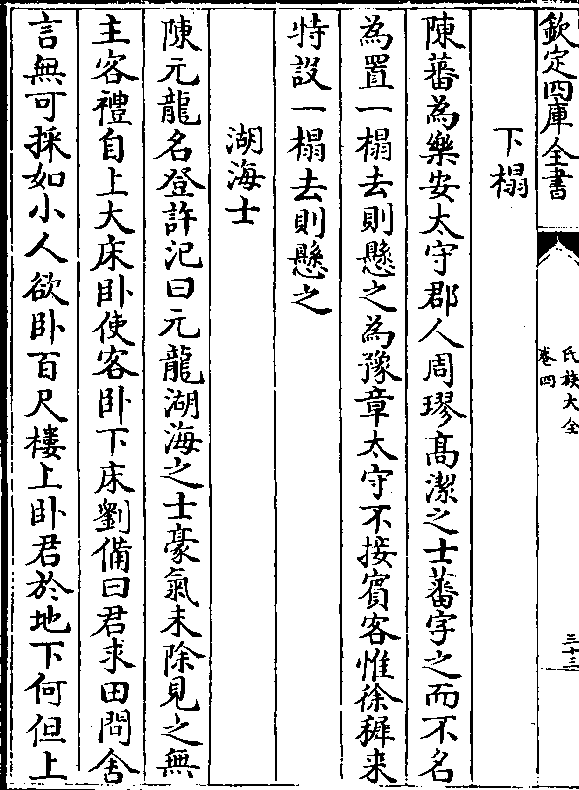 欽定四庫全書
氏族大全
卷四
三十三
下榻
陳蕃為樂安太守郡人周璆髙潔之士蕃字之而不名
為置一榻去則懸之為豫章太守不接賓客惟徐穉来
特設一榻去則懸之
湖海士
陳元龍名登許汜曰元龍湖海之士豪氣未除見之無
主客禮自上大床卧使客卧下床劉備曰君求田問舍
言無可採如小人欲卧百尺樓上卧君於地下何但上